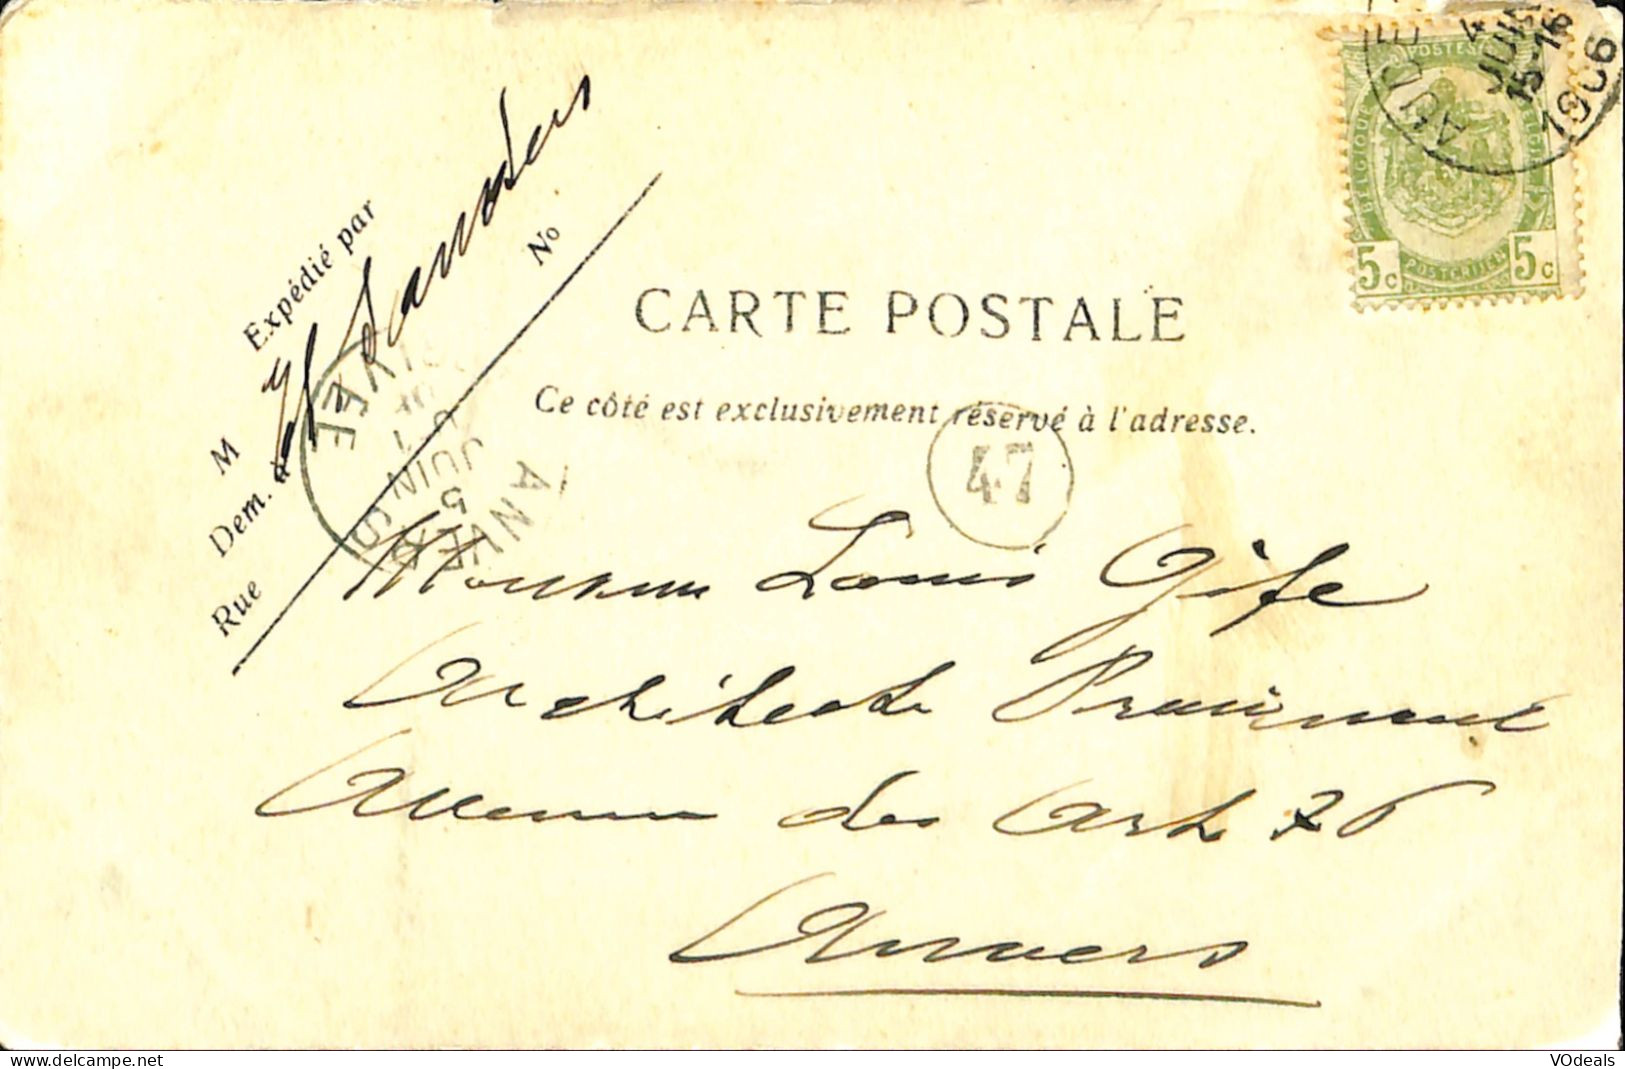 AUDE
4
JUIN
15-16
1906
POSTES
BELGIQUE
BELGIE
5c POSTERIJEN 5c
Expédié par
M Sanders
Dem. à
Rue No
CARTE POSTALE
Ce côté est exclusivement réservé à l'adresse.
47
ANVERS
5
JUIN
7
Monsieur Louis Gife
Architecte Provincial
Avenue des Arts 76
Anvers
delcampe.net
VOdeals